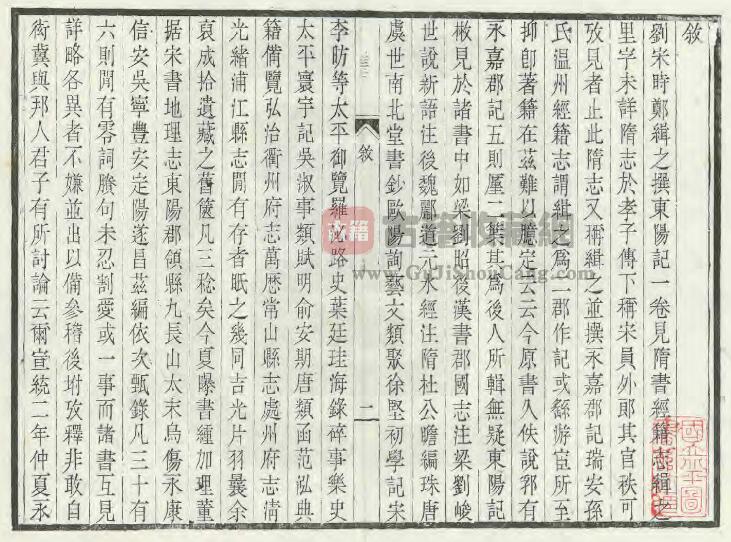 敘
劉宋時鄭緝之撰東陽記一卷見隋書經籍志緝之
里字未詳隋志於孝子傳下稱宋員外郎其官秩可
攷見者止此隋志又稱緝之並撰永嘉郡記瑞安孫
氏温州經籍志謂緝之為二郡作記或繇游宦所至
抑卽著籍在茲難以臆定云云今原書久佚說郛有
永嘉郡記五則厪二葉其為後人所輯無疑東陽記
散見於諸書中如梁劉昭後漢書郡國志注梁劉峻
世說新語注後魏酈道元水經注隋杜公瞻編珠唐
虞世南北堂書鈔歐陽詢藝文類聚徐堅初學記宋
敘
二
李昉等太平御覽羅泌路史葉廷珪海錄碎事樂史
太平寰宇記吳淑事類賦明俞安期唐類函范泓典
籍備覽弘治衢州府志萬歷常山縣志處州府志淸
光緒浦江縣志閒有存者眂之幾同吉光片羽曩余
裒成拾遺藏之舊篋凡三稔矣今夏曝書緟加理董
据宋書地理志東陽郡領縣九長山太末烏傷永康
信安吳寧豐安定陽遂昌茲編依次甄錄凡三十有
六則閒有零詞賸句未忍割愛或一事而諸書互見
詳略各異者不嫌並出以備參稽後坿攷釋非敢自
衒冀與邦人君子有所討論云爾宣統二年仲夏永
古籍
古籍收藏網
www.GuJiShouCang.com